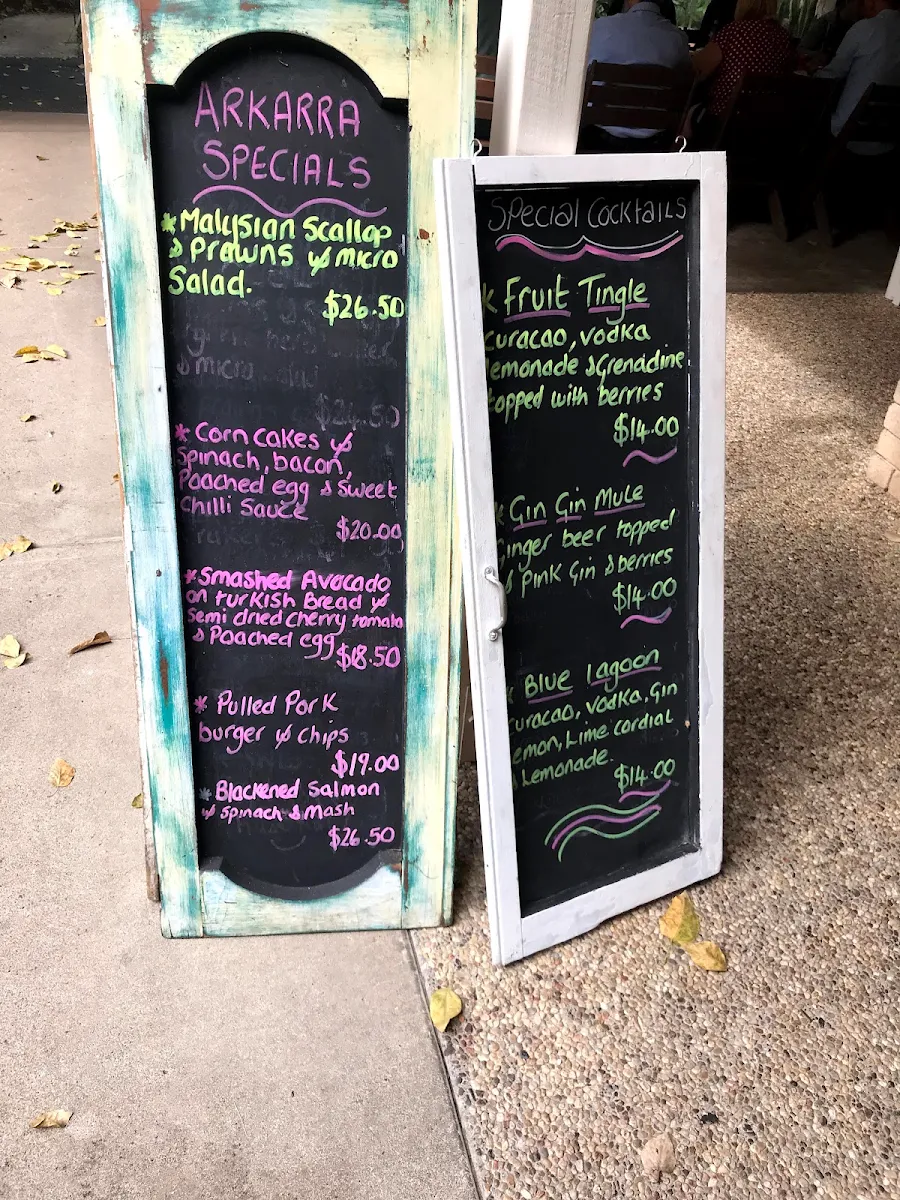 ARKARRA
SPECIALS
* Malysian Scallop
& Prawns w/ micro
Salad.
$26.50
& micro
$24.50
* Corn cakes w/
Spinach, bacon,
Poached egg & Sweet
Chilli Sauce
$20.00
* Smashed Avocado
on turkish Bread w/
Semi dried cherry tomato
& Poached egg
$18.50
* Pulled Pork
burger w/ chips
$19.00
* Blackened Salmon
w/ Spinach & Mash
$26.50
Special Cocktails
* Fruit Tingle
curacao, vodka
lemonade & Grenadine
topped with berries
$14.00
* Gin Gin Mule
Ginger beer topped
& Pink Gin & berries
$14.00
* Blue lagoon
curacao, vodka, Gin
lemon, Lime cordial
& Lemonade.
$14.00